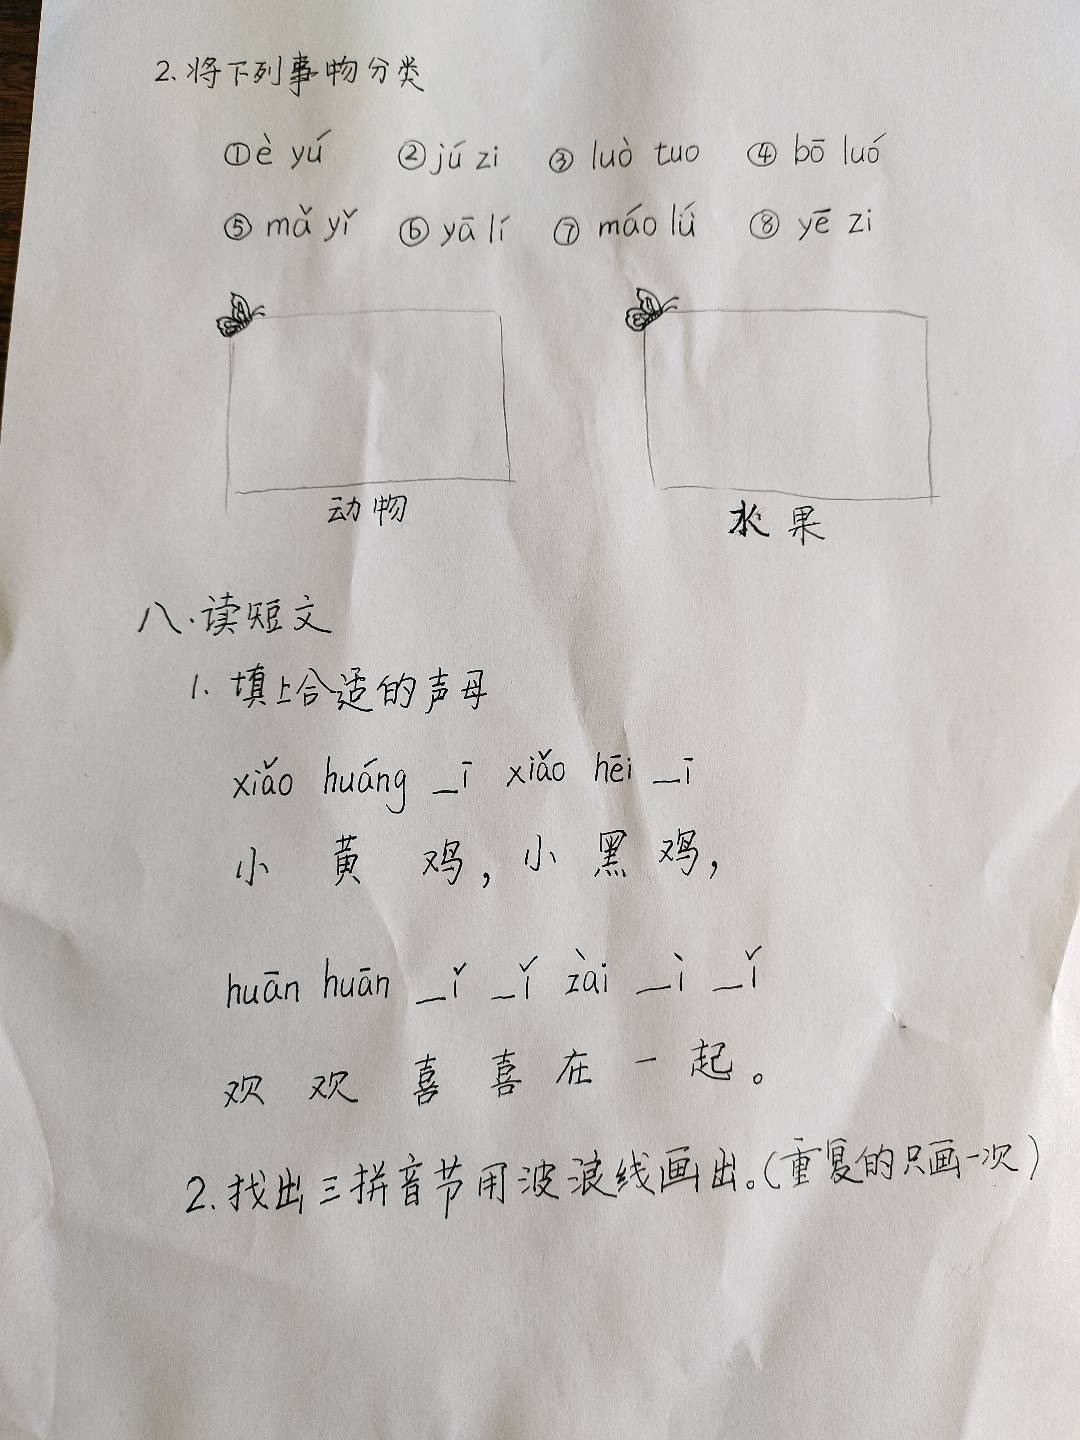 2.将下列事物分类
①è yú ②jú zi ③ luò tuo ④ bō luó
⑤ mǎ yǐ ⑥ yā lí ⑦ máo lǘ ⑧ yē zi
动物 水果
八.读短文
1. 填上合适的声母
xiǎo huáng _ī xiǎo hēi _ī
小 黄 鸡,小 黑 鸡,
huān huān _ǐ _ǐ zài _ì _ǐ
欢 欢 喜 喜 在 一 起。
2.找出三拼音节用波浪线画出。(重复的只画一次)